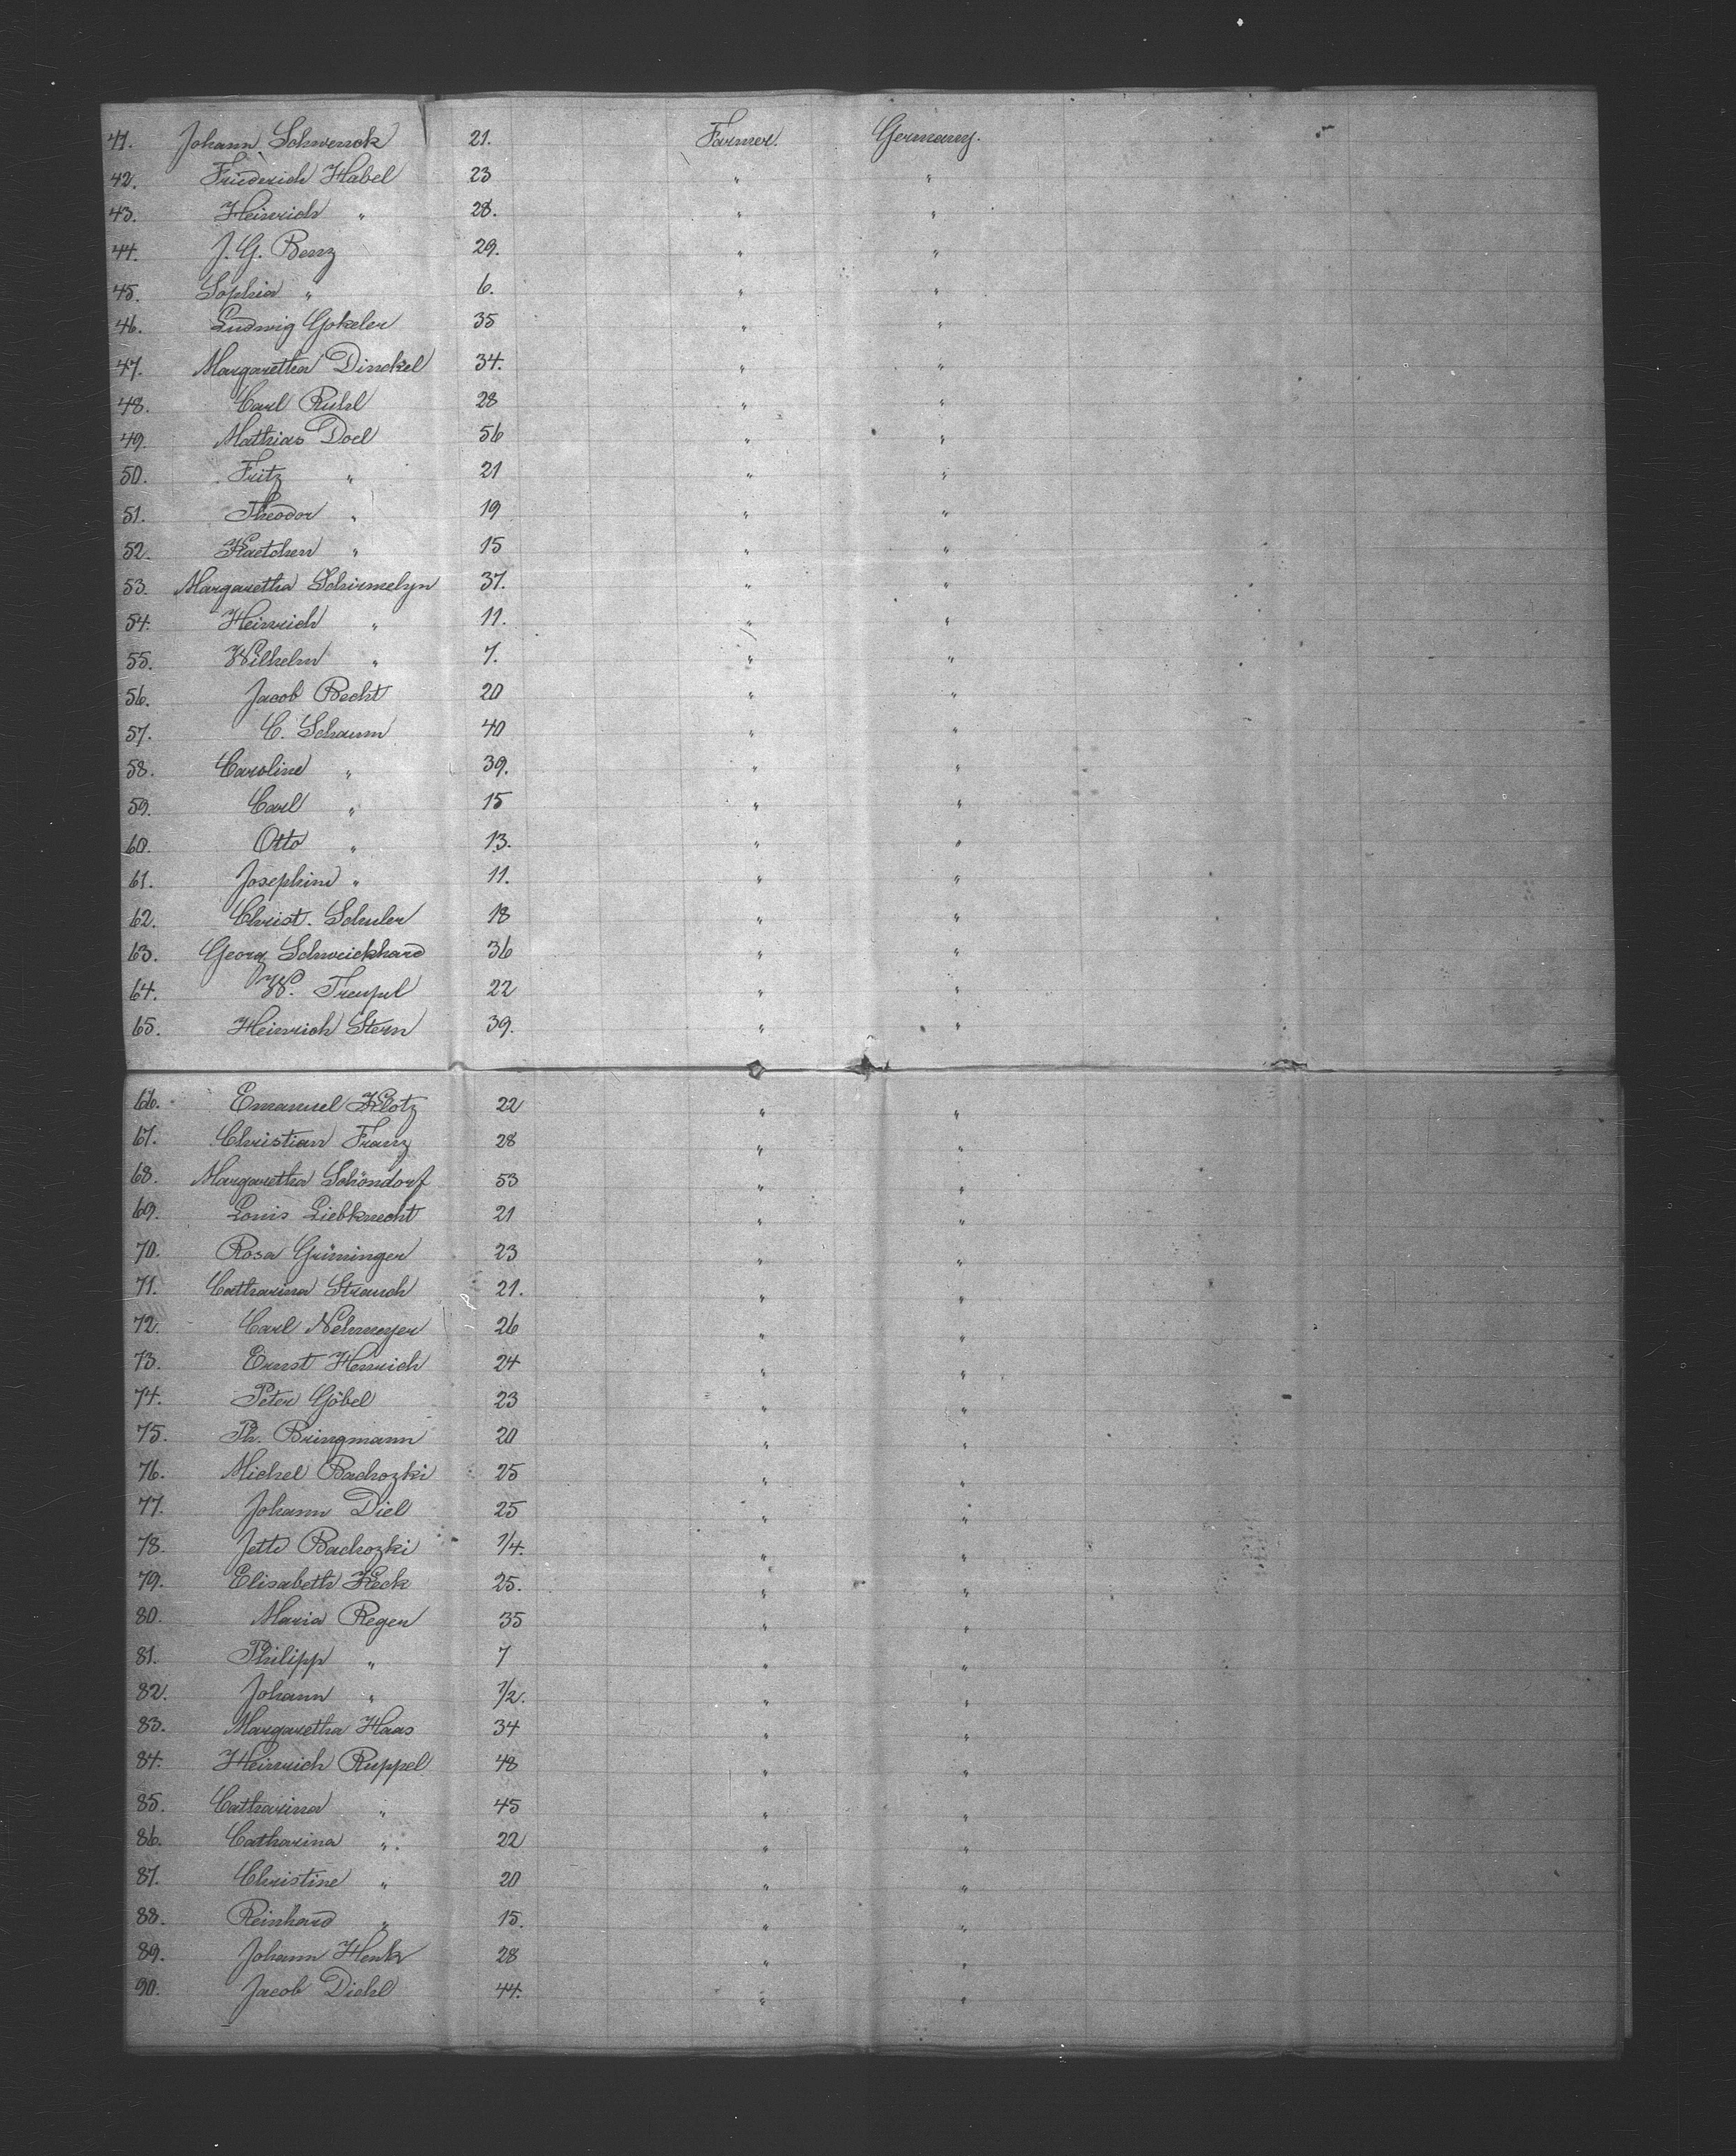 41. Johann Schwenck 21. Farmer. Germany.
42. Friederich Habel 23 " "
43. Heinrich " 28. " "
44. J. G. Benz 29. " "
45. Sophia " 6. " "
46. Ludwig Gokeler 35 " "
47. Margaretha Dinckel 34. " "
48. Carl Ruhl 28 " "
49. Mathias Doel 56 " "
50. Fritz " 21 " "
51. Theodor " 19 " "
52. Kaetchen " 15 " "
53. Margaretha Schirmelyn 37. " "
54. Heinrich " 11. " "
55. Wilhelm " 7. " "
56. Jacob Becht 20 " "
57. C. Schaum 40 " "
58. Caroline " 39. " "
59. Carl " 15 " "
60. Otto " 13. " "
61. Josephine " 11. " "
62. Christ. Schuler 18 " "
63. Georg Schweickhard 36 " "
64. W. Treupel 22 " "
65. Heinrich Stern 39. " "
66. Emanuel Klotz 22 " "
67. Christian Franz 28 " "
68. Margaretha Schöndorf 53 " "
69. Louis Liebknecht 21 " "
70. Rosa Grüninger 23 " "
71. Catharina Strauch 21. " "
72. Carl Nehmeyer 26 " "
73. Ernst Henrich 24 " "
74. Peter Göbel 23 " "
75. Ph. Bringmann 20 " "
76. Michel Bachozki 25 " "
77. Johann Diel 25 " "
78. Jette Bachozki 1/4. " "
79. Elisabeth Keck 25. " "
80. Maria Regen 35 " "
81. Philipp " 7 " "
82. Johann " 1/2. " "
83. Margaretha Haas 34 " "
84. Heinrich Ruppel 48 " "
85. Catharina " 45 " "
86. Catharina " 22 " "
87. Christine " 20 " "
88. Reinhard " 15. " "
89. Johann Henk 28 " "
90. Jacob Diehl 44. " "